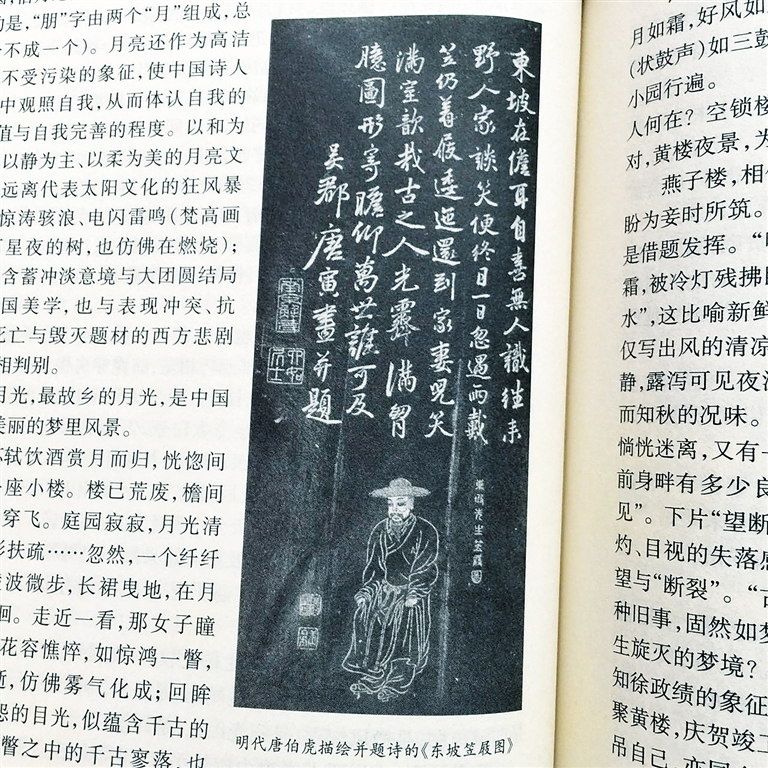 的是，“朋”字由两个“月”组成，总
不成一个）。月亮还作为高洁
不受污染的象征，使中国诗人
中观照自我，从而体认自我的
值与自我完善的程度。以和为
以静为主、以柔为美的月亮文
远离代表太阳文化的狂风暴
惊涛骇浪、电闪雷鸣（梵高画
星夜的树，也仿佛在燃烧）；
含蓄冲淡意境与大团圆结局
国美学，也与表现冲突、抗
死亡与毁灭题材的西方悲剧
相判别。
月光，最故乡的月光，是中国
美丽的梦里风景。
苏轼饮酒赏月而归，恍惚间
座小楼。楼已荒废，檐间
穿飞。庭园寂寂，月光清
影扶疏……忽然，一个纤纤
凌波微步，长裙曳地，在月
徊。走近一看，那女子瞳
花容憔悴，如惊鸿一瞥，
逝，仿佛雾气化成；回眸
怨的目光，似蕴含千古的
瞥之中的千古寥落，也
東坡在儋耳自喜無人識往来
野人家談笑便終日一日忽遇雨戴
笠仍着屐逶迤還到家妻児笑
滿室歆哉古之人光霽滿胷
臆圖形寄瞻仰萬世誰可及
吴郡唐寅畫并題
六如居士
東坡先生笠屐圖
明代唐伯虎描绘并题诗的《东坡笠屐图》
月如霜，好风如
（状鼓声）如三鼓
小园行遍。
人何在？空锁楼
对，黄楼夜景，为
燕子楼，相
盼为妾时所筑。
是借题发挥。“
霜，被冷灯残拂
水”，这比喻新鲜
仅写出风的清凉
静，露泻可见夜深
而知秋的况味。
惝恍迷离，又有一
前身畔有多少良
见”。下片“望断
灼、目视的失落感
望与“断裂”。“古
种旧事，固然如梦
生旋灭的梦境？
知徐政绩的象征
聚黄楼，庆贺竣工
吊自己，